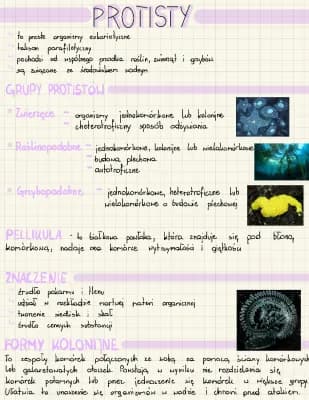 PROTISTY
to proste organizmy eukariotyczne
takson parafiletyczny
pochodzi od wspólnego przodka roślin, zwierząt i grzybów
są związane ze środowiskiem wodnym
GRUPY PROTISTÓW
Zwierzęce - organizmy jednokomórkowe lub kolonijne
- cheterotroficzny sposób odżywiania
Roślinopodobne - jednokomórkowe, kolonijne lub wielokomórkowe
- budowa plechowa
- autotroficzne
Grzybopodobne - jednokomórkowe, heterotroficzne lub
wielokomórkowe o budowie plechowej
PELLIKULA - to białkowa powłoka, która znajduje się pod błoną
komórkową, nadaje ona komórce wytrzymałości i giętkości
ZNACZENIE
źródło pokarmu i tlenu
udział w rozkładzie martwej materii organicznej
tworzenie siedlisk i skał
źródło cennych substancji
FORMY KOLONIJNE
To zespoły komórek połączonych ze sobą za pomocą ściany komórkowych
lub galaretowatych otoczek. Powstają w wyniku nie rozdzielenia się
komórek potomnych lub przez jednoczenie się komórek w większe grupy.
Ułatwia to unoszenie się organizmów w wodzie i chroni przed atakiem.